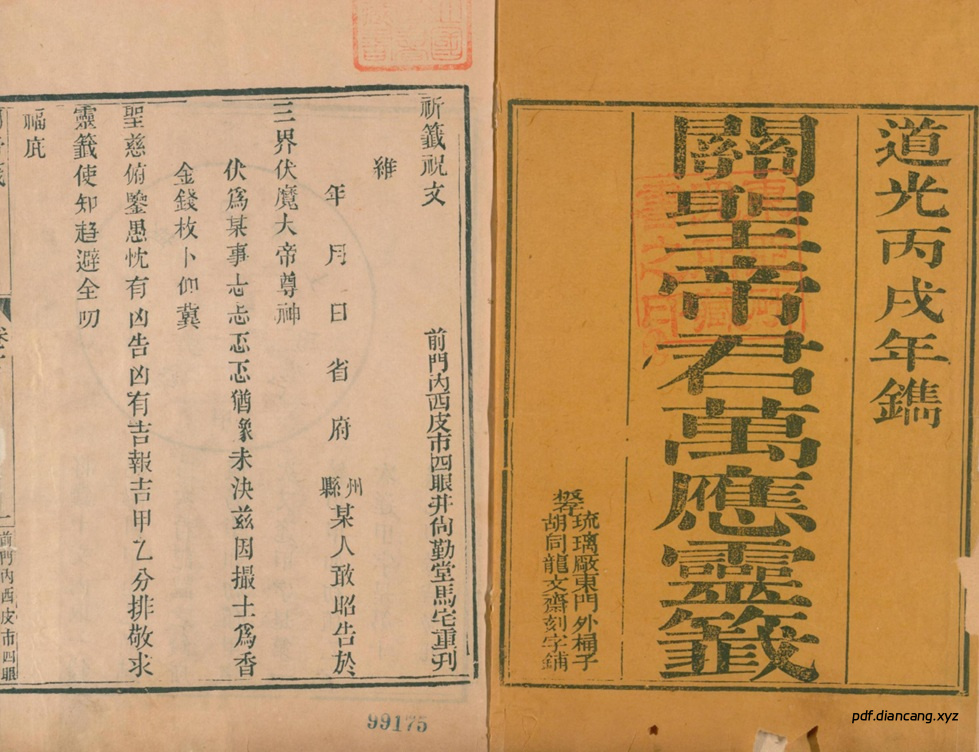 道光丙戌年鐫
關聖帝君萬應靈籤
琉璃廠東門外桶子
胡同龍文齋刻字鋪
祈籤祝文
前門內西皮市四眼井向勤堂馬宅重刋
維
年 月 日 省 府 州縣 某人敢昭告於
三界伏魔大帝尊神
伏爲某事忐忑忑忑猶豫未決兹因撮土爲香
金錢枚卜仰冀
聖慈俯鑒愚忱有凶告凶有吉報吉甲乙分排敬求
靈籤使知趋避全叨
福庇
前門內西皮市四眼
99175
pdf.diancang.xyz